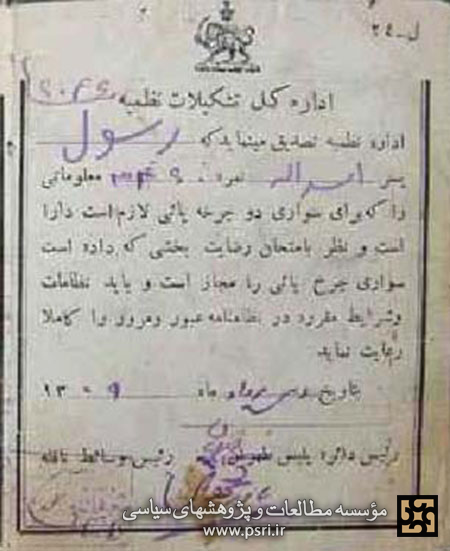 ل-۲۴
اداره کل تشکیلات نظمیه
اداره نظمیه تصدیق مینماید که رسول
پسر اسداله نمره معلوماتی
را که برای سواری دو چرخه پائی لازم است دارا
است و نظر بامتحان رضایت بخشی که داده است
سواری چرخ پائی را مجاز است و باید نظامات
وشرایط مقرره در نظامنامه عبور ومرور را کاملا
رعایت نماید
بتاریخ ماه ۱۳۰۹
رئیس دائره پلیس طهران رئیس وسائط نقلیه
مؤسسه مطالعات و پژوهشهای سیاسی
www.psri.ir